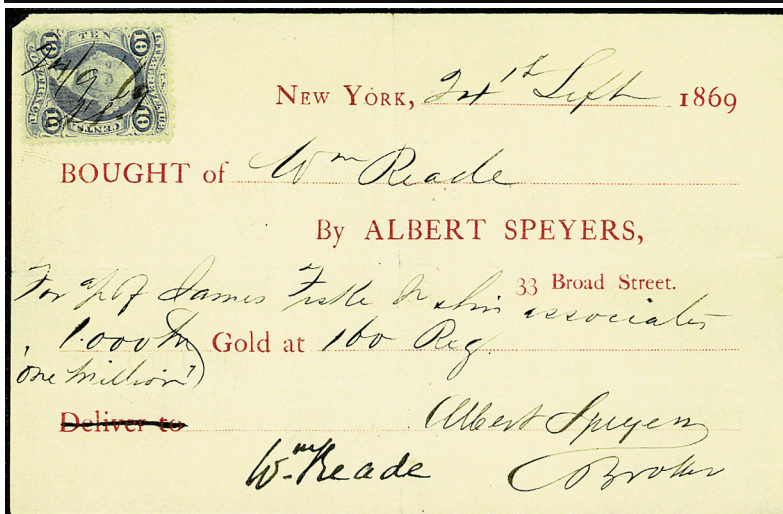 TEN
10 10
CENTS
10 10
NEW YORK, 24th Sept 1869
BOUGHT of Wm Reade
By ALBERT SPEYERS,
33 Broad Street.
For a/c of James Fiske Jr & his associates
1.000 m Gold at 160 Reg
(one million)
Deliver to
Albert Speyers
Wm Reade
Broker